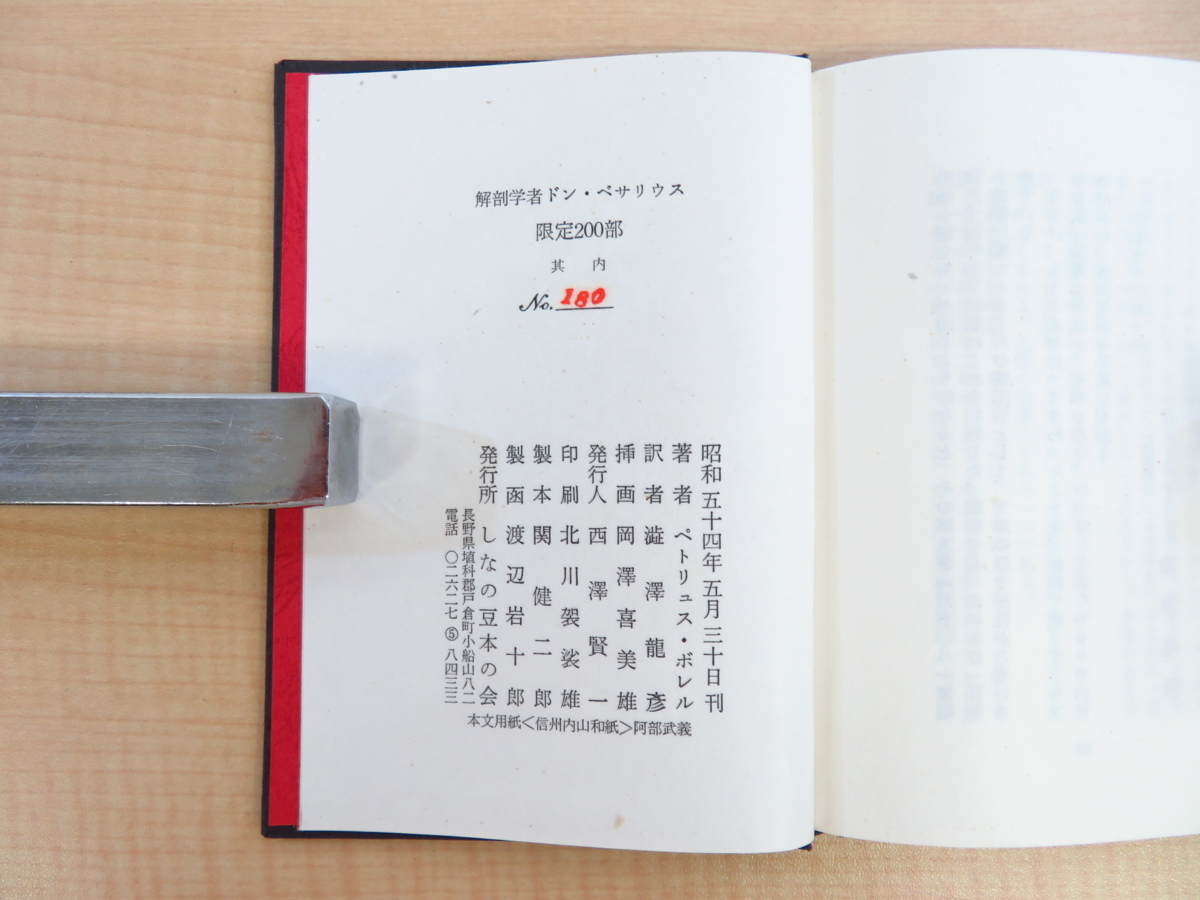 解剖学者ドン・ベサリウス
限定200部
其　内
No. 180
昭和五十四年五月三十日刊
著者　ペトリュス・ボレル
訳者　澁澤龍彦
挿画　岡澤喜美雄
発行人　西澤賢一
印刷　北川袈裟雄
製本　関健二郎
製函　渡辺岩十郎
発行所　しなの豆本の会
長野県埴科郡戸倉町小船山八二
電話　〇二六二七⑤八四三三
本文用紙＜信州内山和紙＞阿部武義